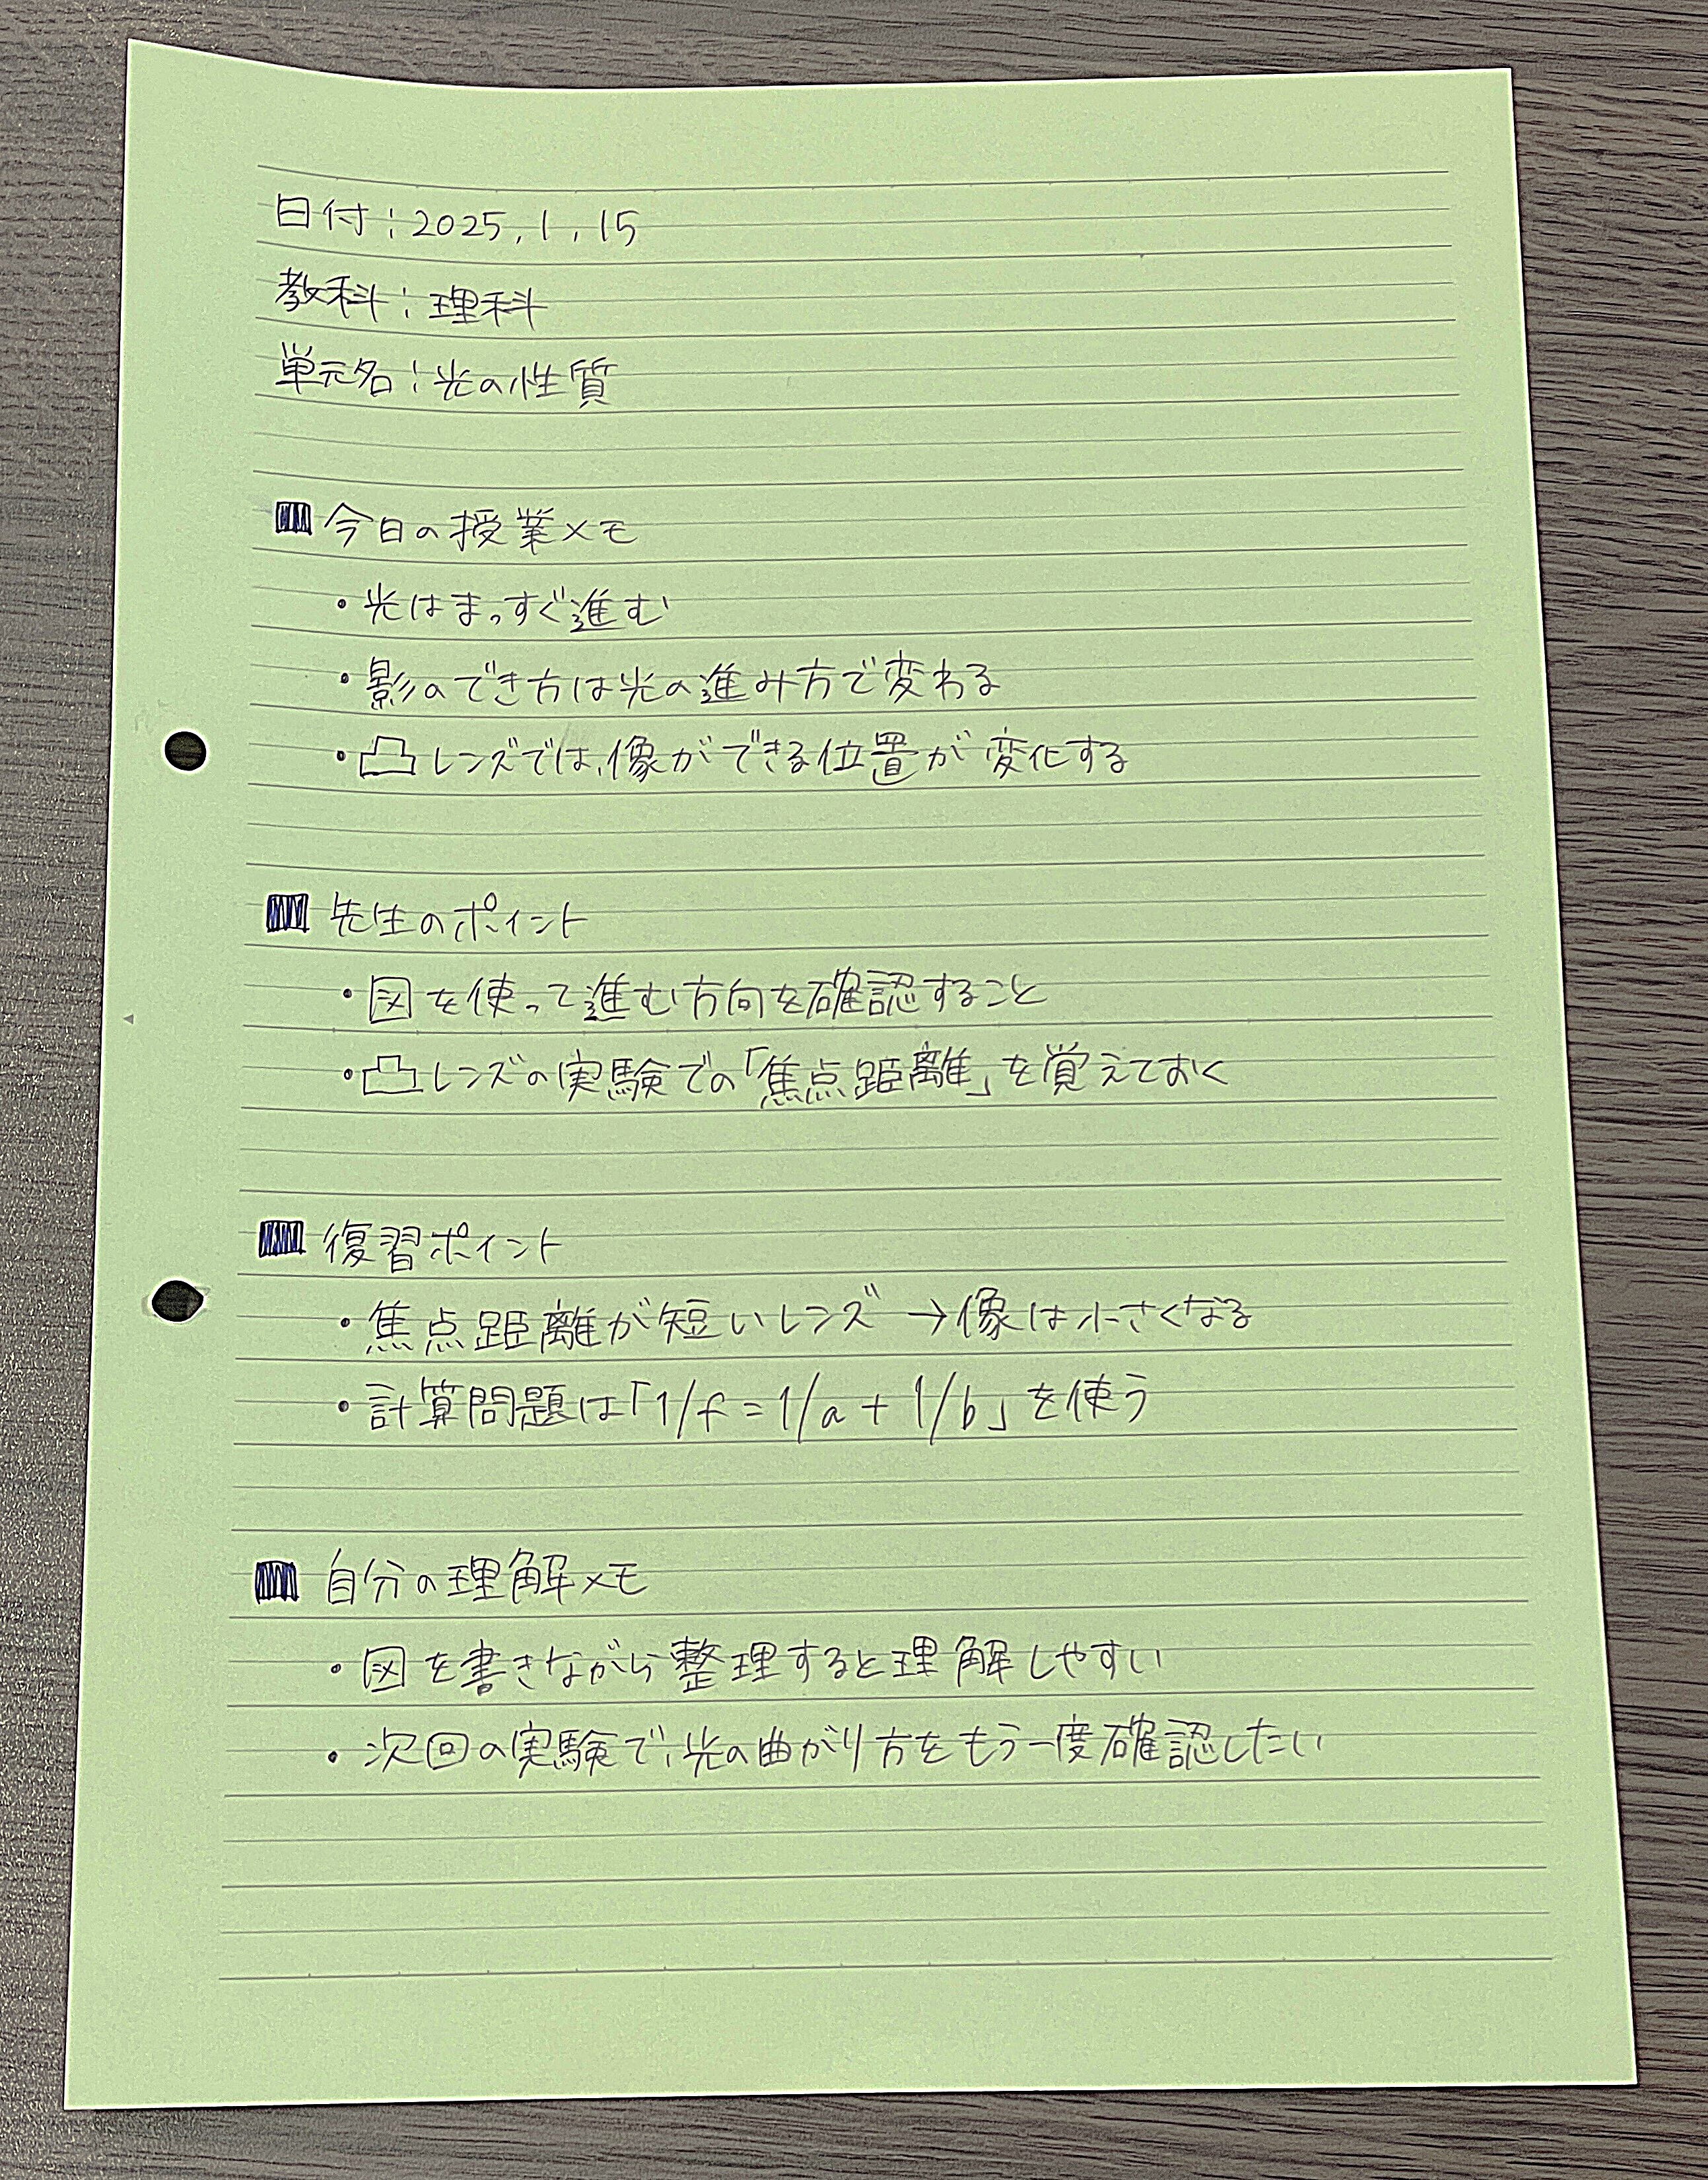 日付:2025.1.15
教科:理科
単元名:光の性質
■今日の授業メモ
・光はまっすぐ進む
・影のでき方は光の進み方で変わる
・凸レンズでは、像ができる位置が変化する
■先生のポイント
・図を使って進む方向を確認すること
・凸レンズの実験での「焦点距離」を覚えておく
■復習ポイント
・焦点距離が短いレンズ→像は小さくなる
・計算問題は「1/f=1/a+1/b」を使う
■自分の理解メモ
・図を書きながら整理すると理解しやすい
・次回の実験で、光の曲がり方をもう一度確認したい